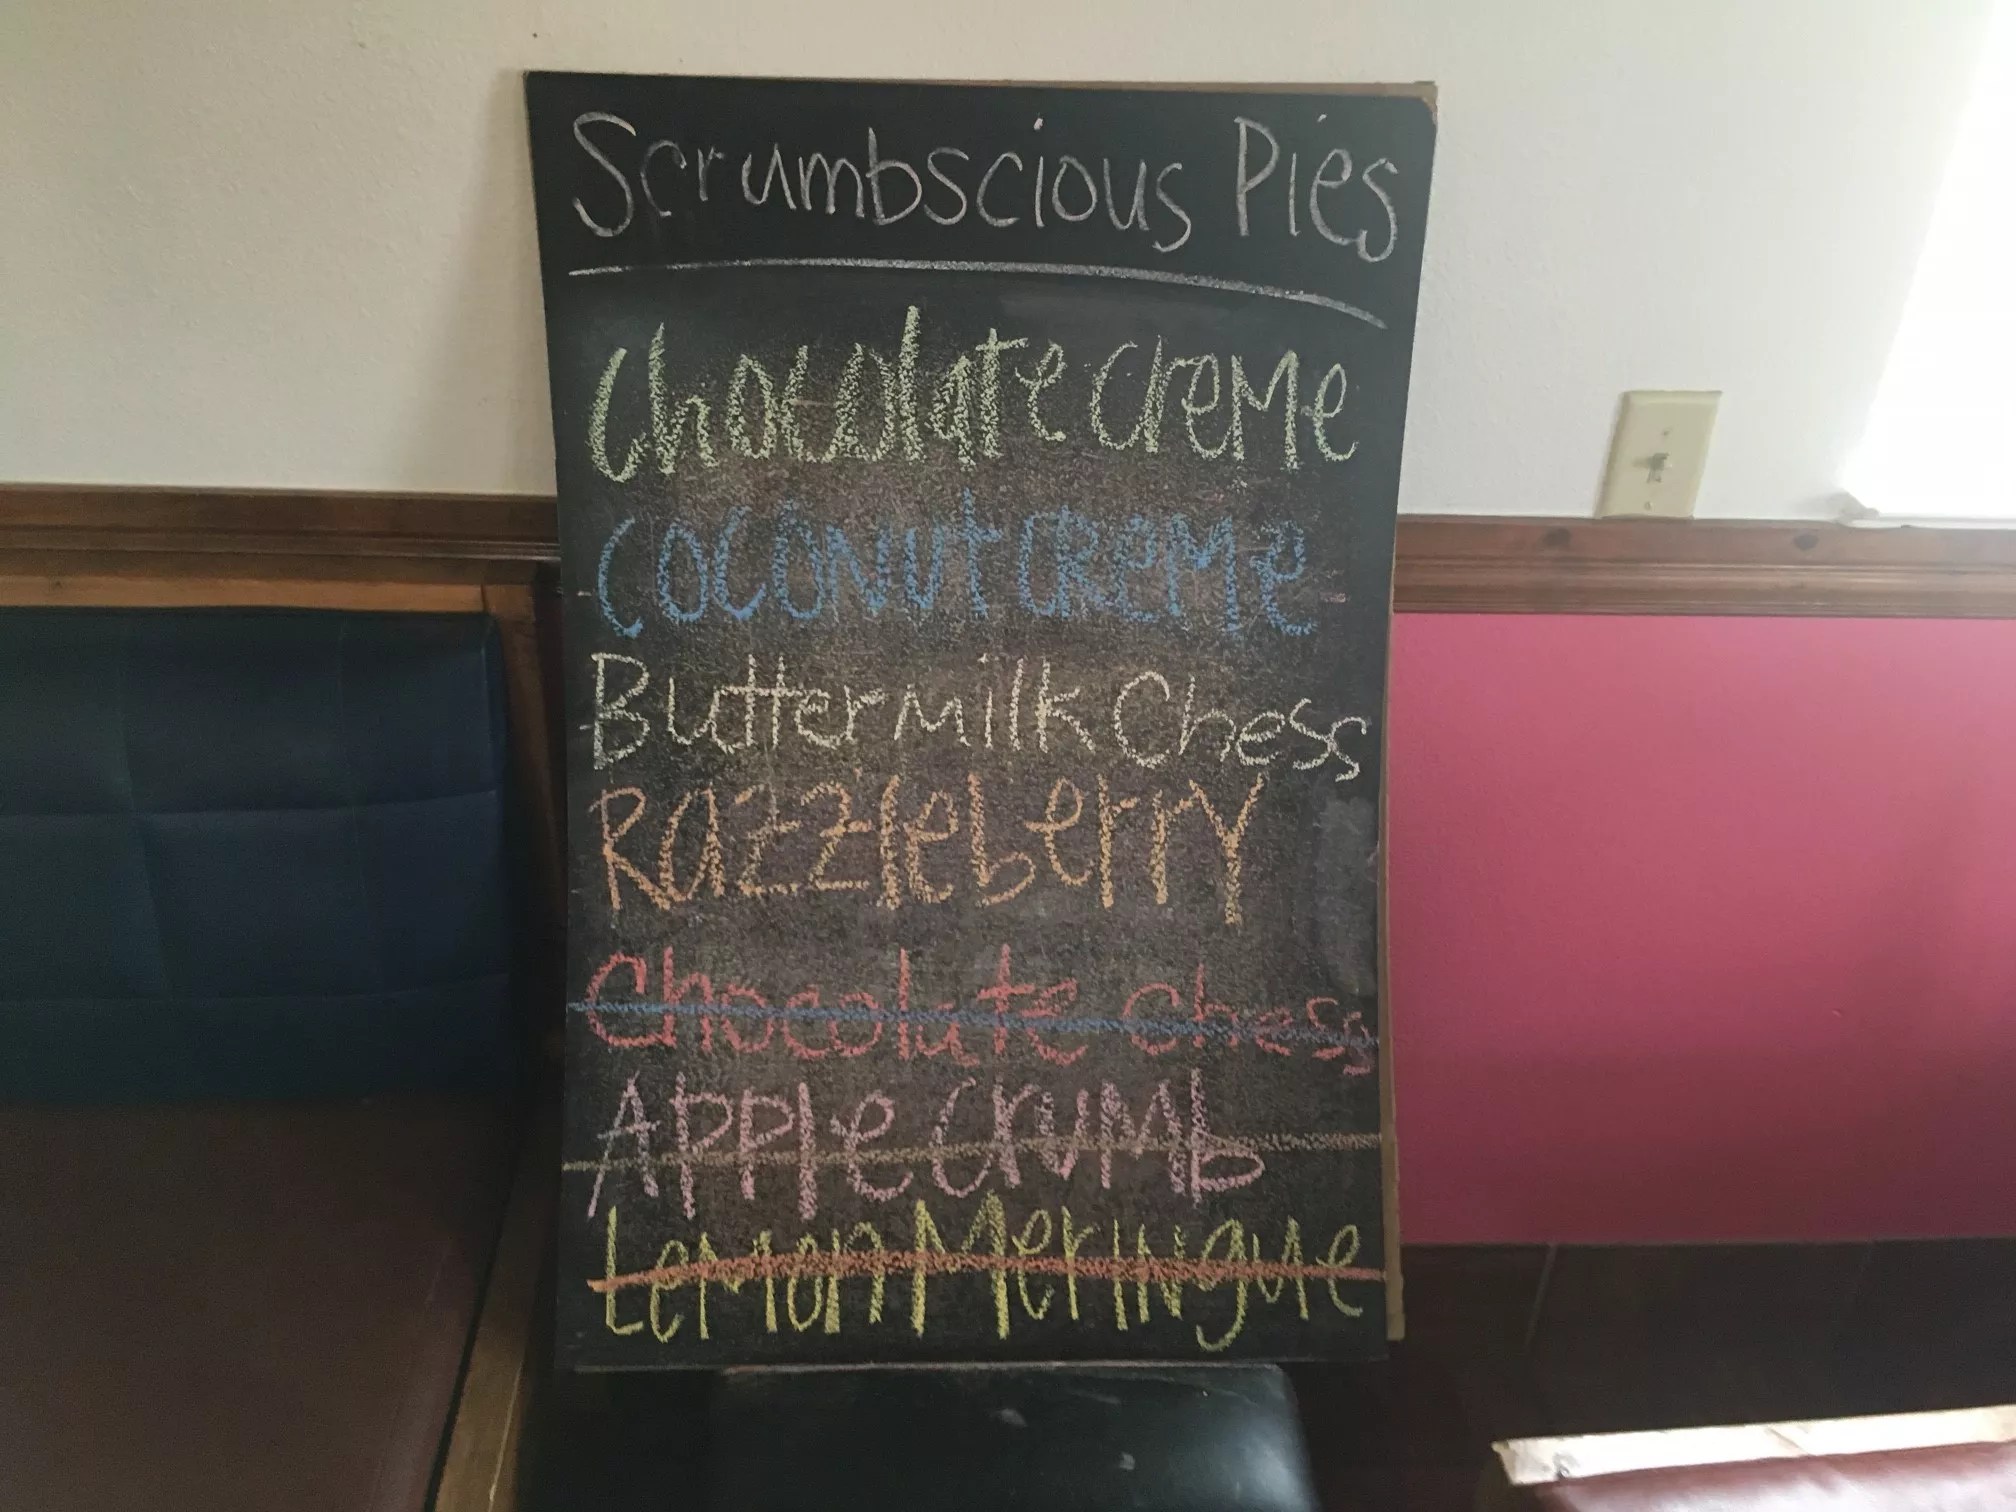 Scrumbscious Pies
Chocolate Creme
Coconut Creme
Buttermilk Chess
Razzleberry
Chocolate Chess
Apple Crumb
Lemon Meringue